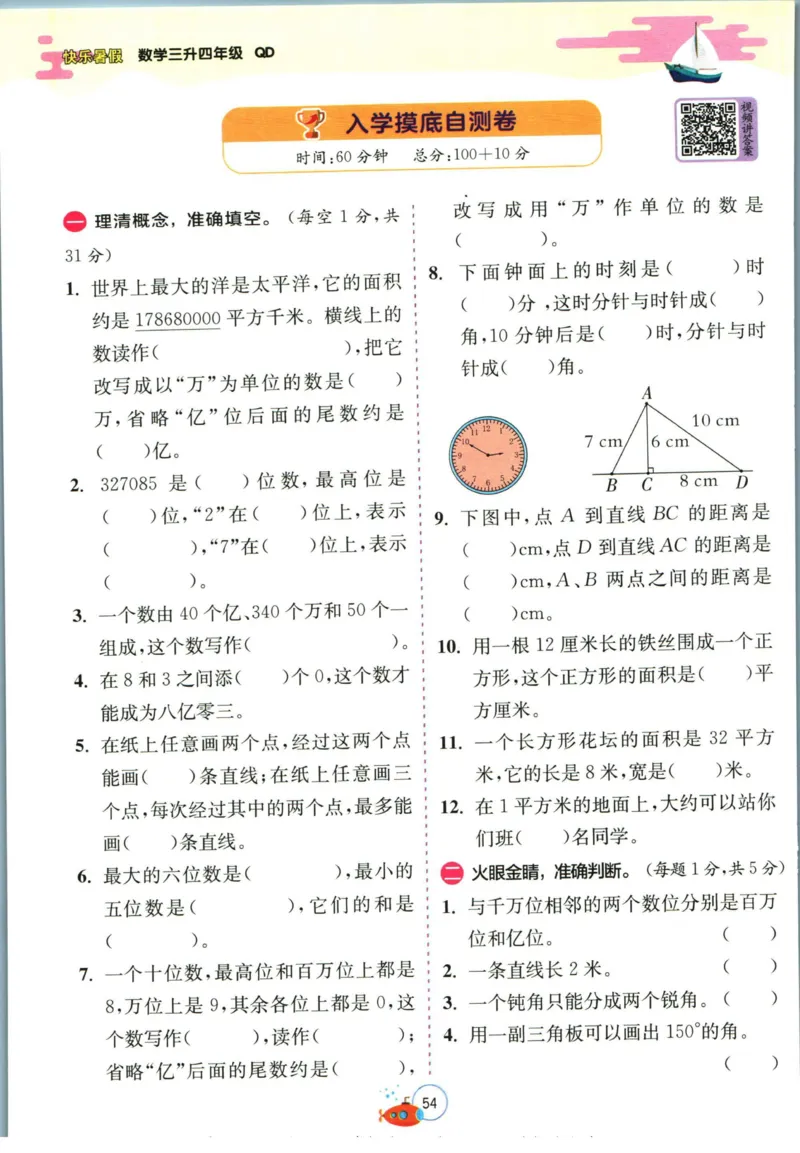 快乐暑假 数学三升四年级 QD
入学摸底自测卷
时间:60分钟 总分:100+10分
视频讲答案
一 理清概念，准确填空。（每空1分，共
31分）
1. 世界上最大的洋是太平洋，它的面积
约是178680000平方千米。横线上的
数读作( )，把它
改写成以“万”为单位的数是( )
万，省略“亿”位后面的尾数约是
( )亿。
2. 327085 是( )位数，最高位是
( )位，“2”在( )位上，表示
( )，“7”在( )位上，表示
( )。
3. 一个数由40个亿、340个万和50个一
组成，这个数写作( )。
4. 在8和3之间添( )个0，这个数才
能成为八亿零三。
5. 在纸上任意画两个点，经过这两个点
能画( )条直线；在纸上任意画三
个点，每次经过其中的两个点，最多能
画( )条直线。
6. 最大的六位数是( )，最小的
五位数是( )，它们的和是
( )。
7. 一个十位数，最高位和百万位上都是
8，万位上是9，其余各位上都是0，这
个数写作( )，读作( )；
省略“亿”后面的尾数约是( )，
改写成用“万”作单位的数是
( )。
8. 下面钟面上的时刻是( )时
( )分，这时分针与时针成( )
角，10分钟后是( )时，分针与时
针成( )角。
12 1 2 3 4 5 6 7 8 9 10 11
A
7 cm 6 cm 10 cm
B C 8 cm D
9. 下图中，点 A 到直线 BC 的距离是
( )cm，点 D 到直线 AC 的距离是
( )cm，A、B 两点之间的距离是
( )cm。
10. 用一根12厘米长的铁丝围成一个正
方形，这个正方形的面积是( )平
方厘米。
11. 一个长方形花坛的面积是 32 平方
米，它的长是8米，宽是( )米。
12. 在1平方米的地面上，大约可以站你
们班( )名同学。
二 火眼金睛，准确判断。（每题1分，共5分）
1. 与千万位相邻的两个数位分别是百万
位和亿位。 ( )
2. 一条直线长2米。 ( )
3. 一个钝角只能分成两个锐角。( )
4. 用一副三角板可以画出150°的角。
( )
54